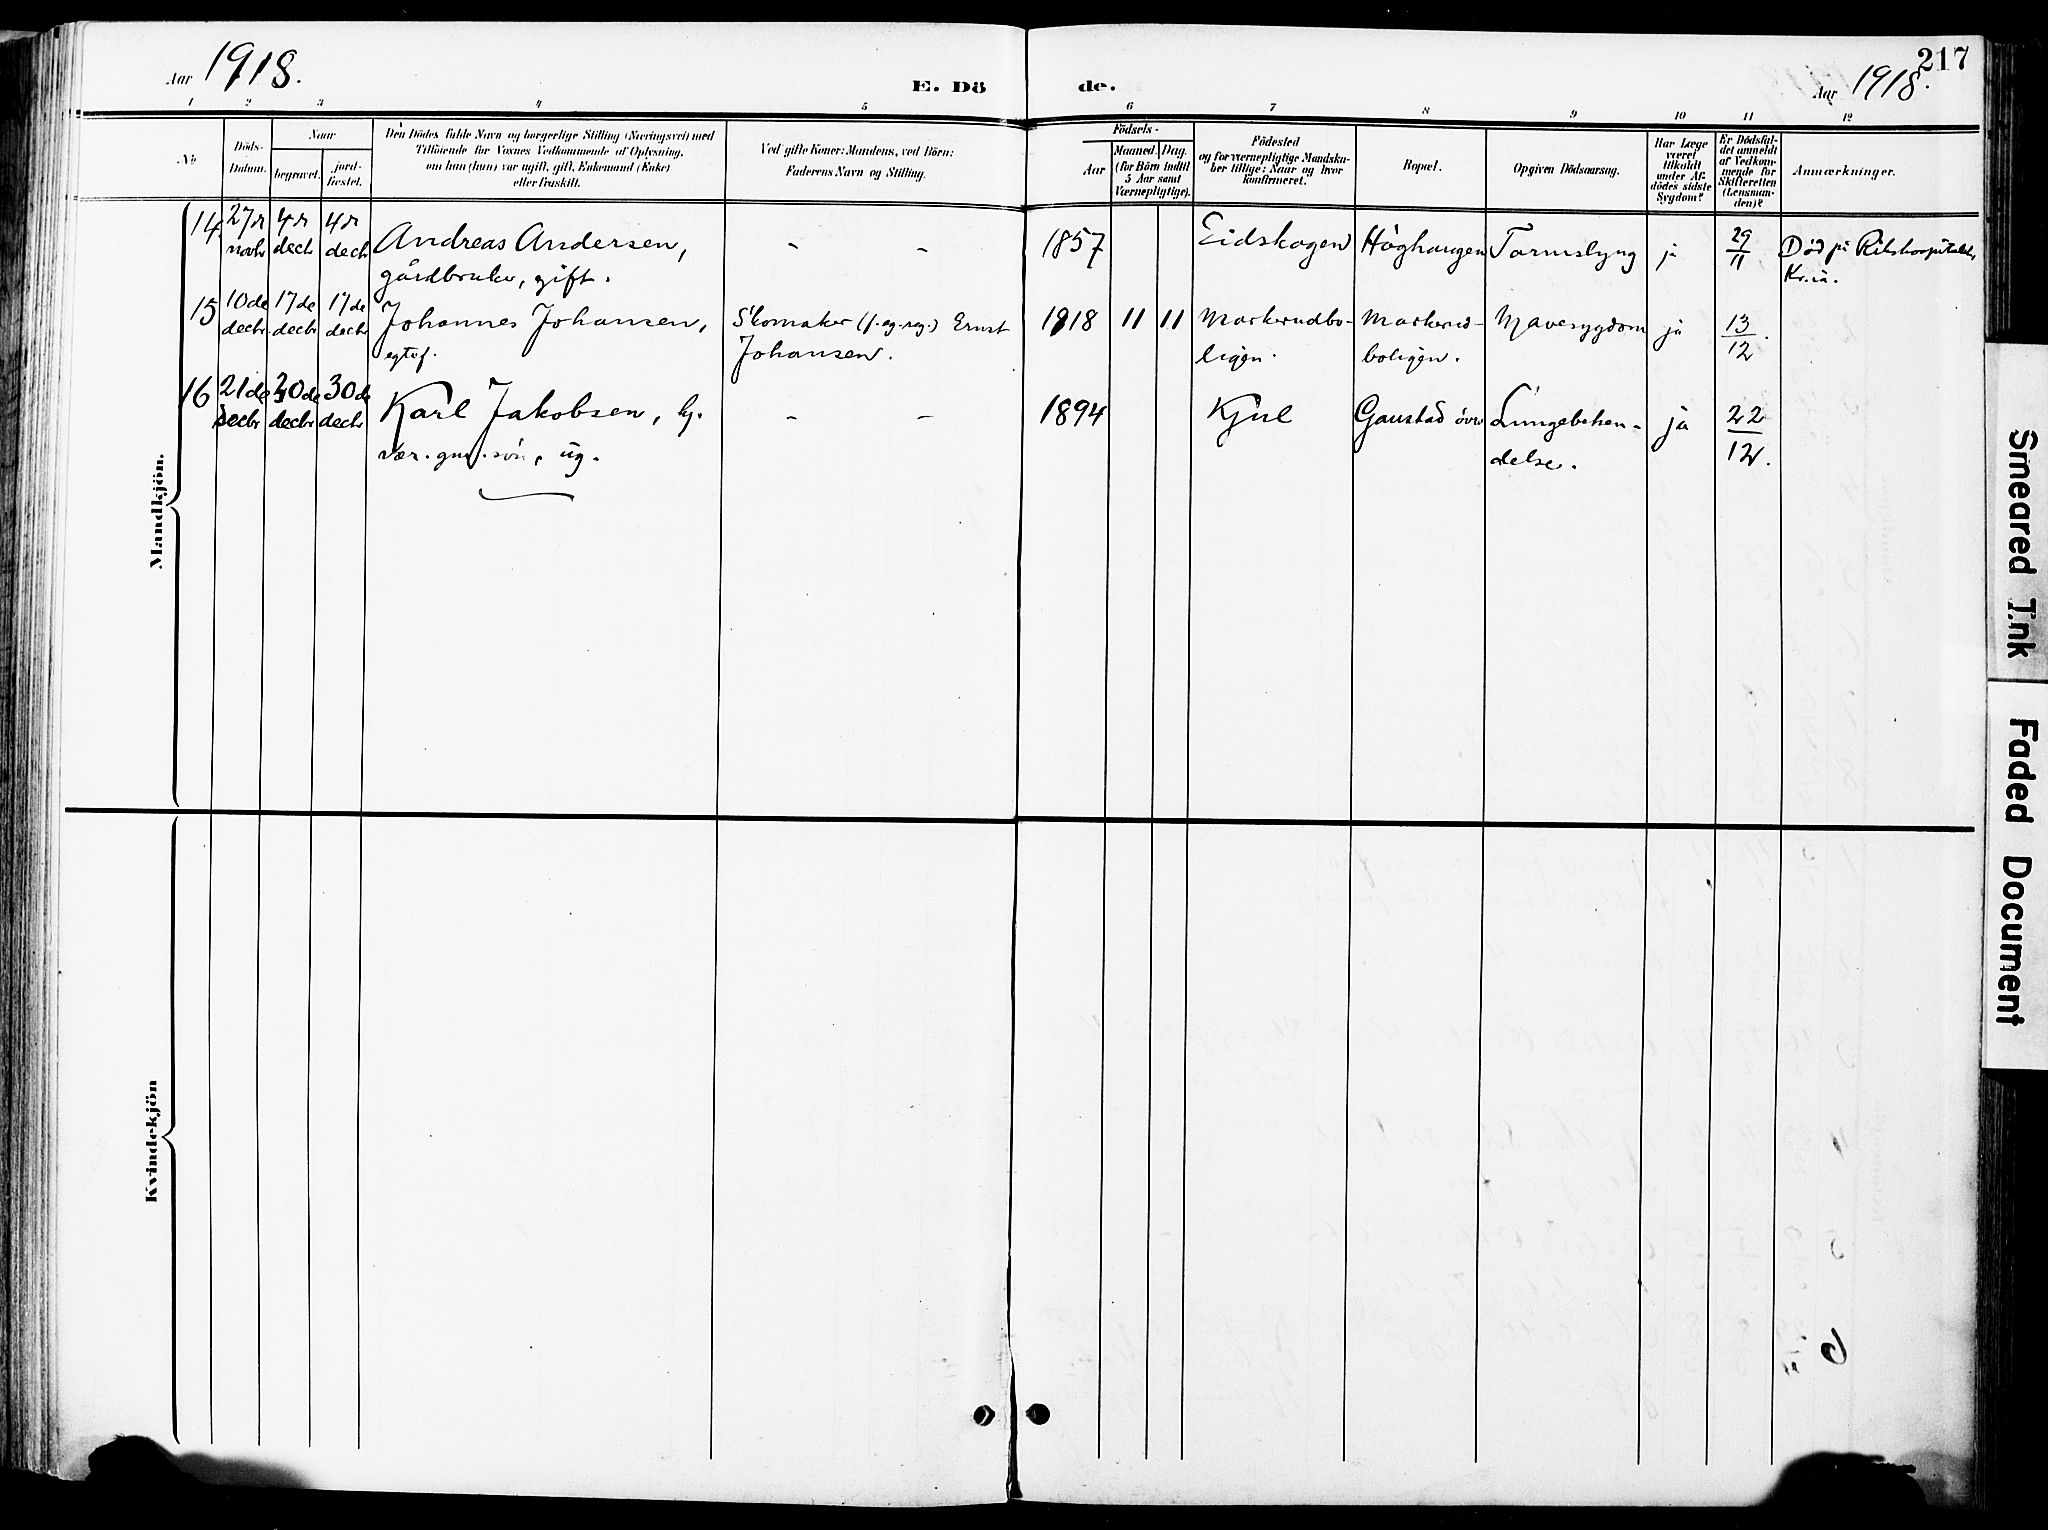 Aar 1918.
E. Dö
de.
217
Aar 1918.
1 2 3 4 5 6 7 8 9 10 11 12
No
Döds-
Datum.
Naar
begravet.
jord-
fæstet.
Den Dödes fulde Navn og borgerlige Stilling (Næringsvei) med
Tilföiende for Voxnes Vedkommende af Oplysning,
om han (hun) var ugift, gift, Enkemand (Enke)
eller fraskilt.
Ved gifte Koner: Mandens, ved Börn:
Faderens Navn og Stilling.
Födsels-
Aar
Maaned. Dag.
(for Börn indtil
5 Aar samt
Værnepligtige).
Födested
og for værnepligtige Mandska-
ber tillige: Naar og hvor
konfirmeret.
Bopæl.
Opgiven Dödsaarsag.
Har Læge
været
tilkaldt
under Af-
dödes sidste
Sygdom?
Er Dödsfal-
det anmeldt
af Vedkom-
mende for
Skifteretten
(Lensman-
den)?
Anmærkninger.
Mandkjön.
14. 27de novbr 4de decbr 4de decbr Andreas Andersen,
gårdbruker, gift.
- -
1857 Eidskogen Höghaugen Tarmslyng ja 29/11 Död på Rikshospitalet,
Kr.ia.
15 10de decbr. 17de decbr 17de decbr Johannes Johansen,
egtef.
Skomaker (f. og reg:) Ernst
Johansen.
1918 11 11 Markerudbo-
ligen.
Markerud-
boligen.
Mavesygdom ja 13/12.
16 21de decbr 30de decbr 30de decbr Karl Jakobsen, lg.
vær. gm. sön, ug.
- -
1894 Kjul Gaustad övre Lungebeten-
delse.
ja 22/12.
Kvindekjön
Smeared Ink
Faded Document